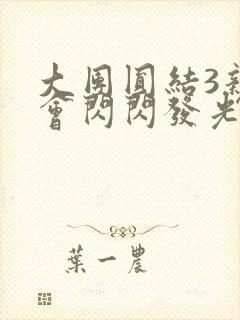 大團圓結3新
會閃閃發光
葉一農